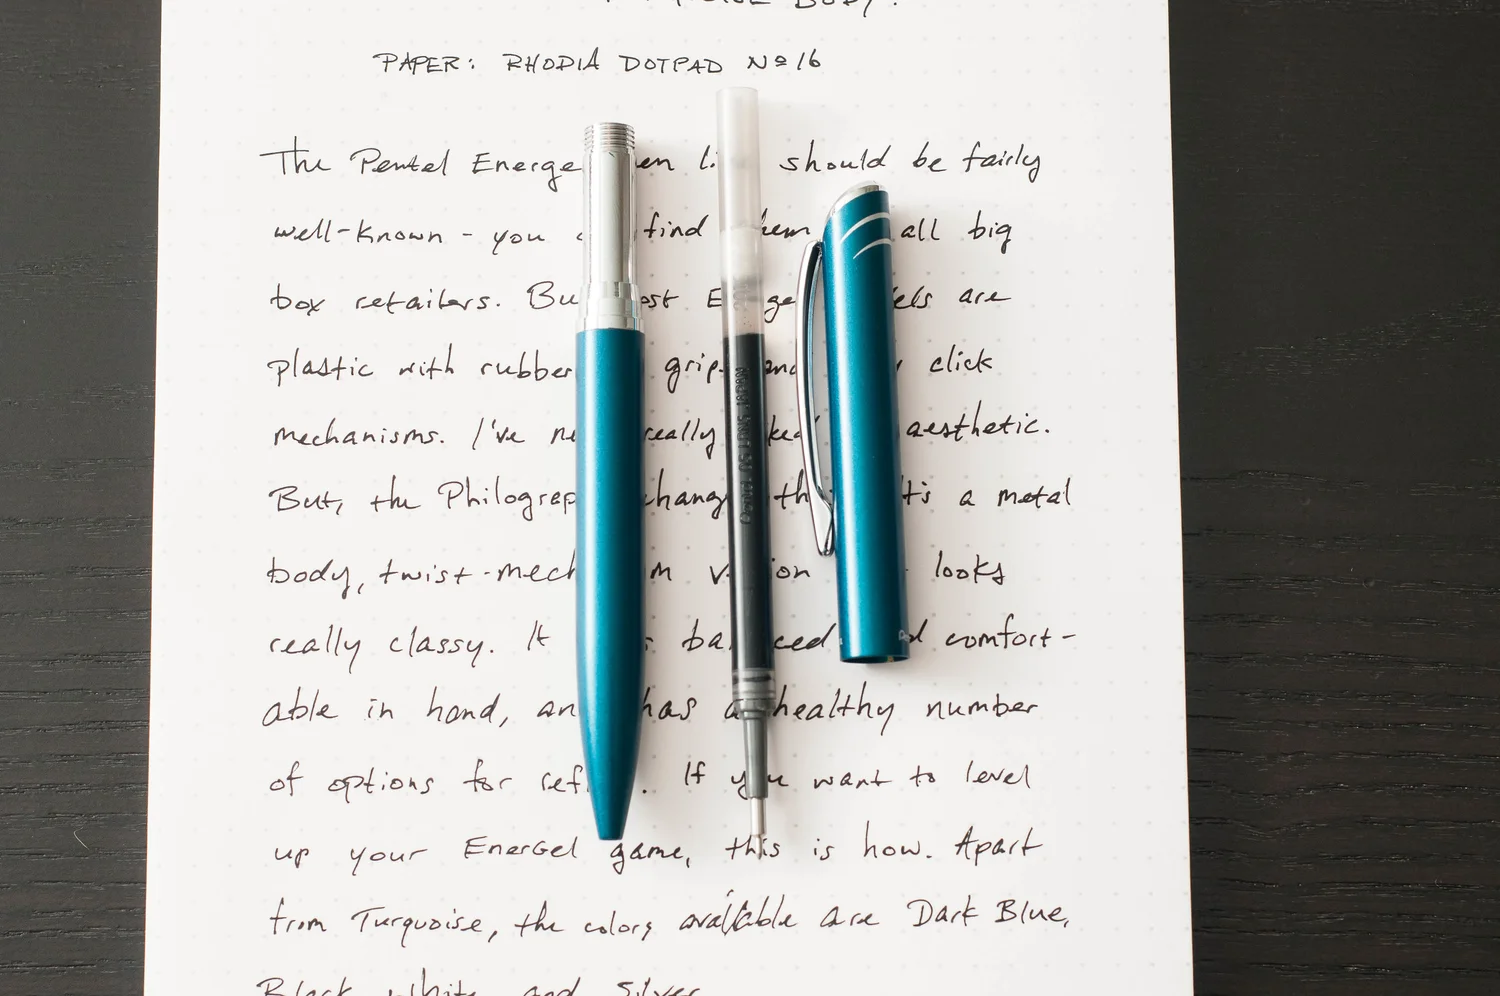 BODY.
PAPER: RHODIA DOTPAD Nº 16
The Pentel Energe en li should be fairly
well-known - you find hem all big
box retailers. Bu ost Energe els are
plastic with rubber grip and click
mechanisms. I've ne really ked aesthetic.
But, the Philograp chang th It's a metal
body, twist-mech m v ion looks
really classy. It ba ced d comfort-
able in hand, an has a healthy number
of options for ref . If you want to level
up your EnerGel game, this is how. Apart
from Turquoise, the colors available are Dark Blue,
Black, White, and Silver.
Pentel JAPAN